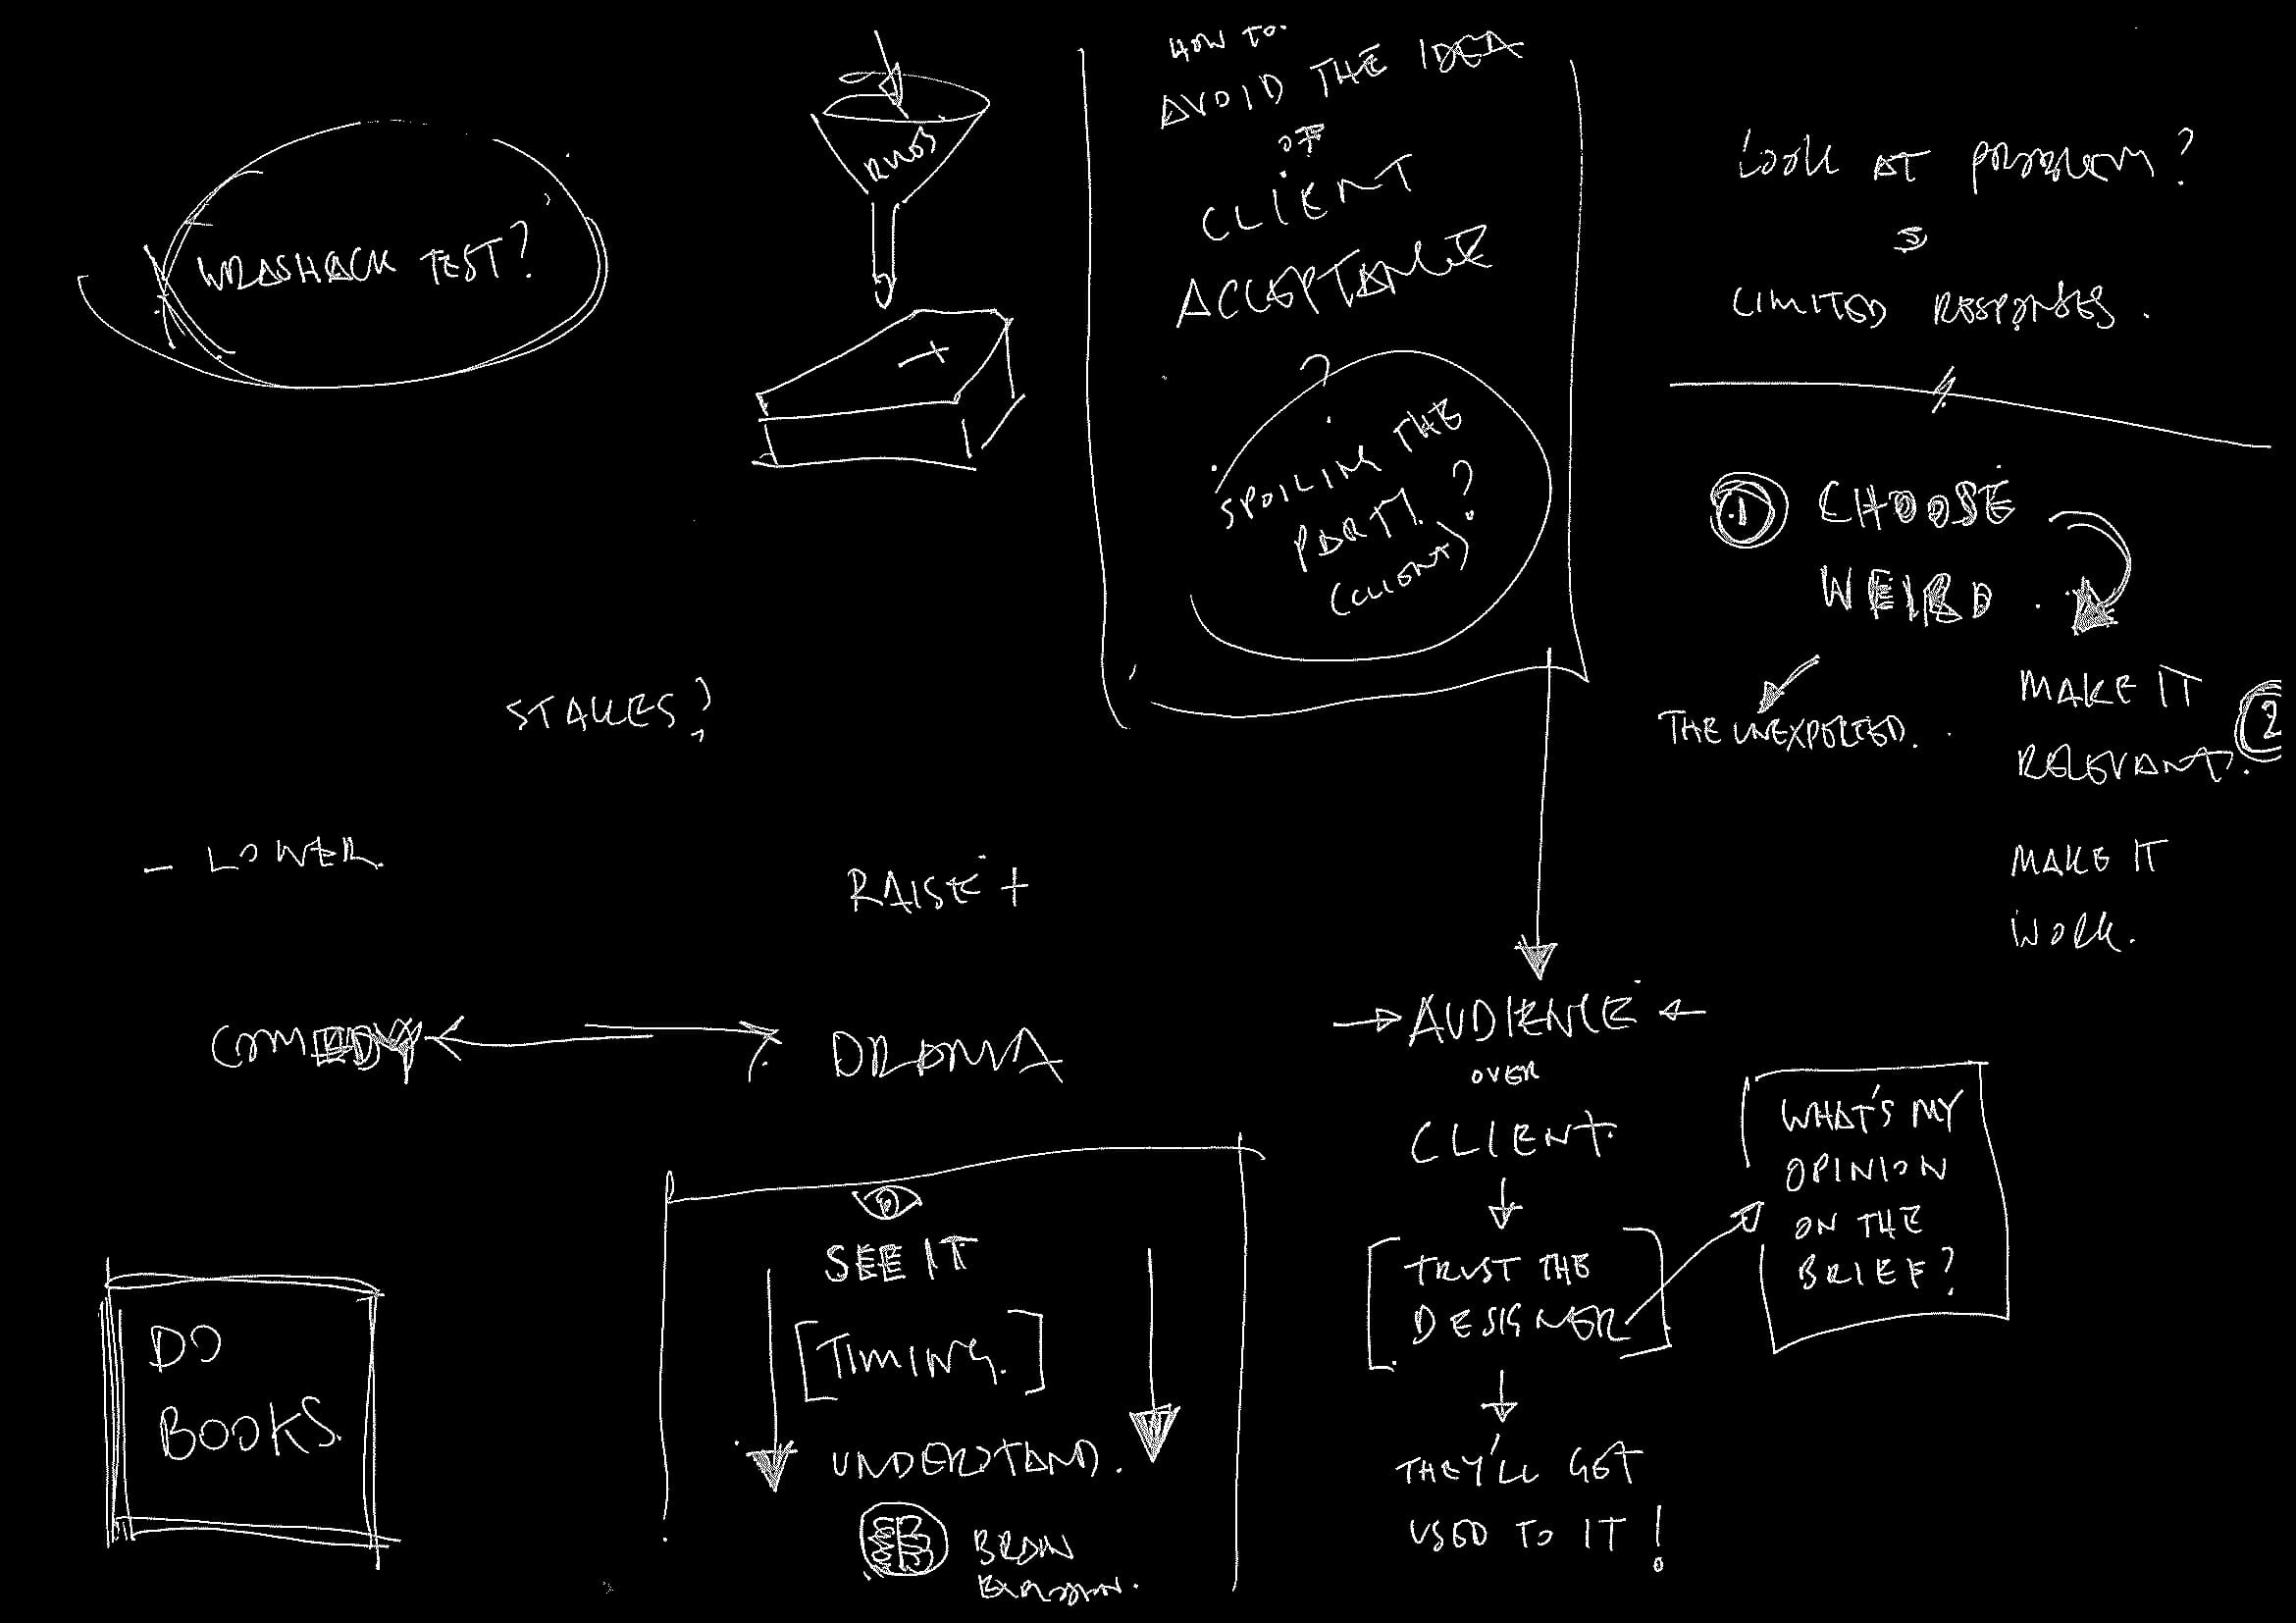 WRASHACK TEST?
HOW TO
AVOID THE IDEA
OF
CLIENT
ACCEPTANCE
?
SPOILING THE
PARTY?
(CLIENT)
LOOK AT PROBLEM?
LIMITED RESPONSES.
1 CHOOSE
WEIRD.
THE UNEXPECTED.
MAKE IT
RELEVANT. 2
MAKE IT
WORK.
STAKES?
- LOWER
RAISE +
COMEDY
DRAMA
AUDIENCE
OVER
CLIENT.
TRUST THE
DESIGNER
THEY'LL GET
USED TO IT!
WHAT'S MY
OPINION
ON THE
BRIEF?
SEE IT
[TIMING.]
UNDERSTAND.
BRAIN
EXPLOSION.
DO
BOOKS